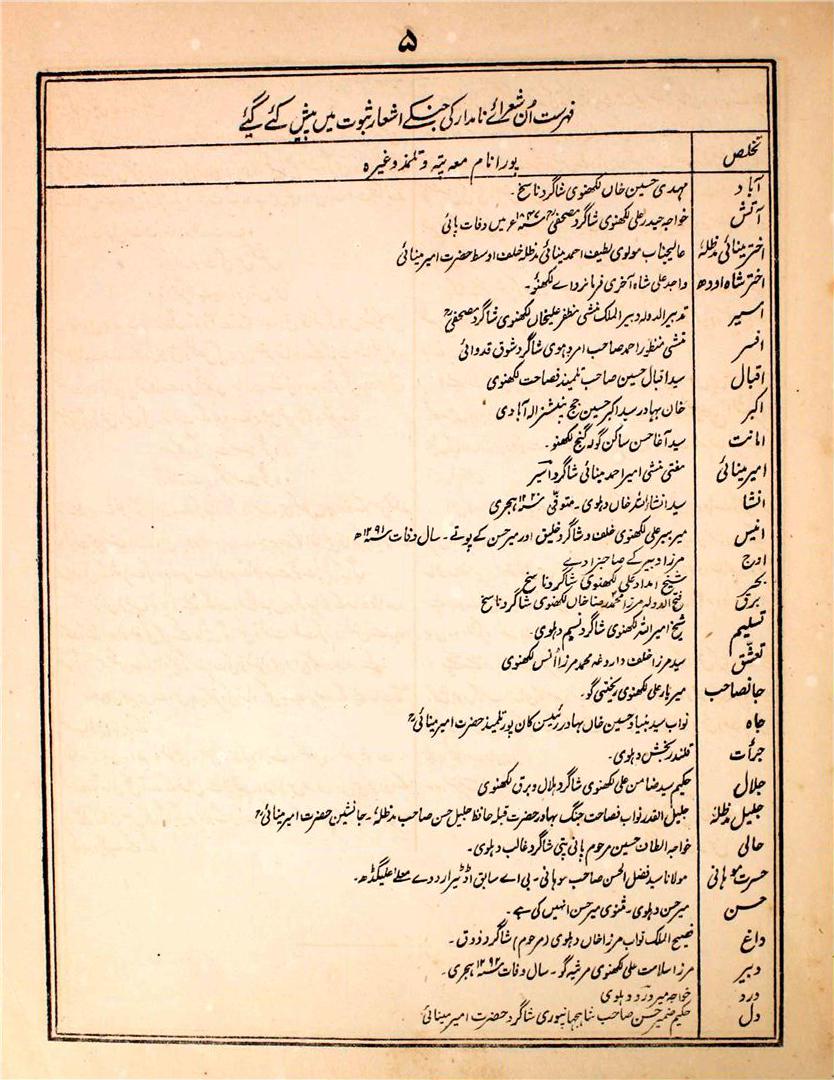 ۵
فہرست اُن شعرائے نامدار کی جنکے اشعار ثبوت میں پیش کئے گئے
تخلص پورا نام معہ پتہ و تلمذ وغیرہ
آباد مہدی حسین خاں لکھنوی شاگرد ناسخ۔
آتش خواجہ حیدر علی لکھنوی شاگرد مصحفیؒ ۱۸۴۷ء میں وفات پائی
اختر مینائی مدظلہٗ عالیجناب مولوی لطیف احمد مینائی مدظلہ خلف اوسط حضرت امیر مینائی
اختر شاہ اودھ واجد علی شاہ آخری فرمانروائے لکھنؤ۔
اسیر تدبیر الدولہ دبیر الملک منشی مظفر علیخاں لکھنوی شاگرد مصحفیؒ
افسر منشی منظور احمد صاحب امروہوی شاگرد شوق قدوائی
اقبال سید اقبال حسین صاحب تلمیذ فصاحت لکھنوی
اکبر خان بہادر سید اکبر حسین جج پنشنر الہ آبادی
امانت سید آغا حسن ساکن گولہ گنج لکھنو۔
امیر مینائی مفتی منشی امیر احمد مینائی شاگرد اسیر
انشا سید انشاء اللہ خاں دہلوی۔ متوفی ۱۲۳۰ ہجری
انیس میر ببر علی لکھنوی خلف و شاگرد خلیق اور میر حسن کے پوتے۔ سال وفات ۱۲۹۱ھ
اوج مرزا دبیر کے صاحبزادے
بحر شیخ امداد علی لکھنوی شاگرد ناسخ
برق فتح الدولہ مرزا محمد رضا خاں لکھنوی شاگرد ناسخ
تسلیم شیخ امیر اللہ لکھنوی شاگرد نسیم دہلوی۔
تعشق سید مرزا خلف داروغہ محمد مرزا انس لکھنوی
جانصاحب میر یار علی لکھنوی ریختی گو۔
جاہ نواب سید بنیاد حسین خاں بہادر رئیس کان پور تلمیذ حضرت امیر مینائیؒ
جرأت قلندر بخش دہلوی۔
جلال حکیم سید ضامن علی لکھنوی شاگرد ہلال و برق لکھنوی
جلیل مدظلہٗ جلیل القدر نواب فصاحت جنگ بہادر حضرت قبلہ حافظ جلیل حسن صاحب مدظلہٗ۔ جانشین حضرت امیر مینائیؒ
حالی خواجہ الطاف حسین مرحوم پانی پتی شاگرد غالب دہلوی۔
حسرت موہانی مولانا سید فضل الحسن صاحب موہانی۔ بی اے سابق اڈیٹر اردوے معلےٰ علیگڈھ۔
حسن میر حسن دہلوی۔ مثنوی میر حسن انہیں کی ہے۔
داغ فصیح الملک نواب مرزا خاں دہلوی (مرحوم) شاگرد ذوق۔
دبیر مرزا سلامت علی لکھنوی مرثیہ گو۔ سال وفات ۱۲۹۲ ہجری۔
درد خواجہ میر درد دہلوی
دل حکیم ضمیر حسن صاحب شاہجہانپوری شاگرد حضرت امیر مینائی